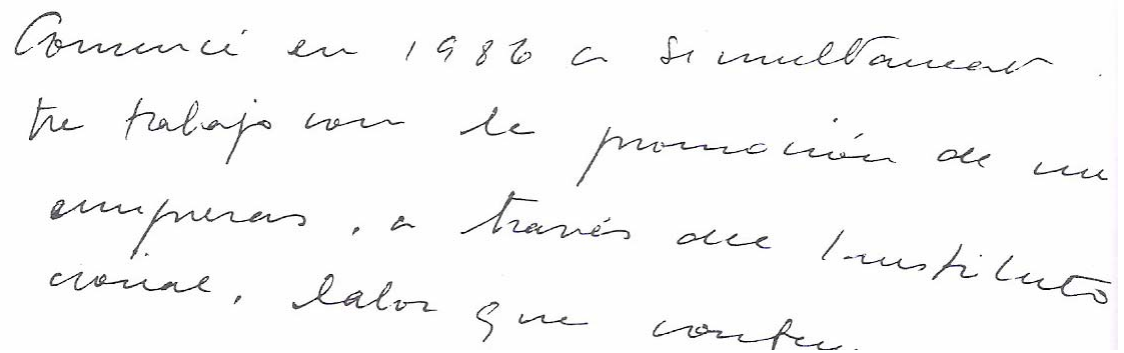 Comencé en 1986 a simultanear
tre trabajo con la promoción de un
empresas, a través del Instituto
cional, labor que